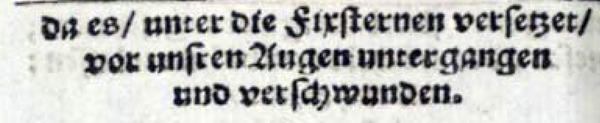 da es/ unter die Fixsternen versetzet/
vor unsren Augen untergangen
und verschwunden.